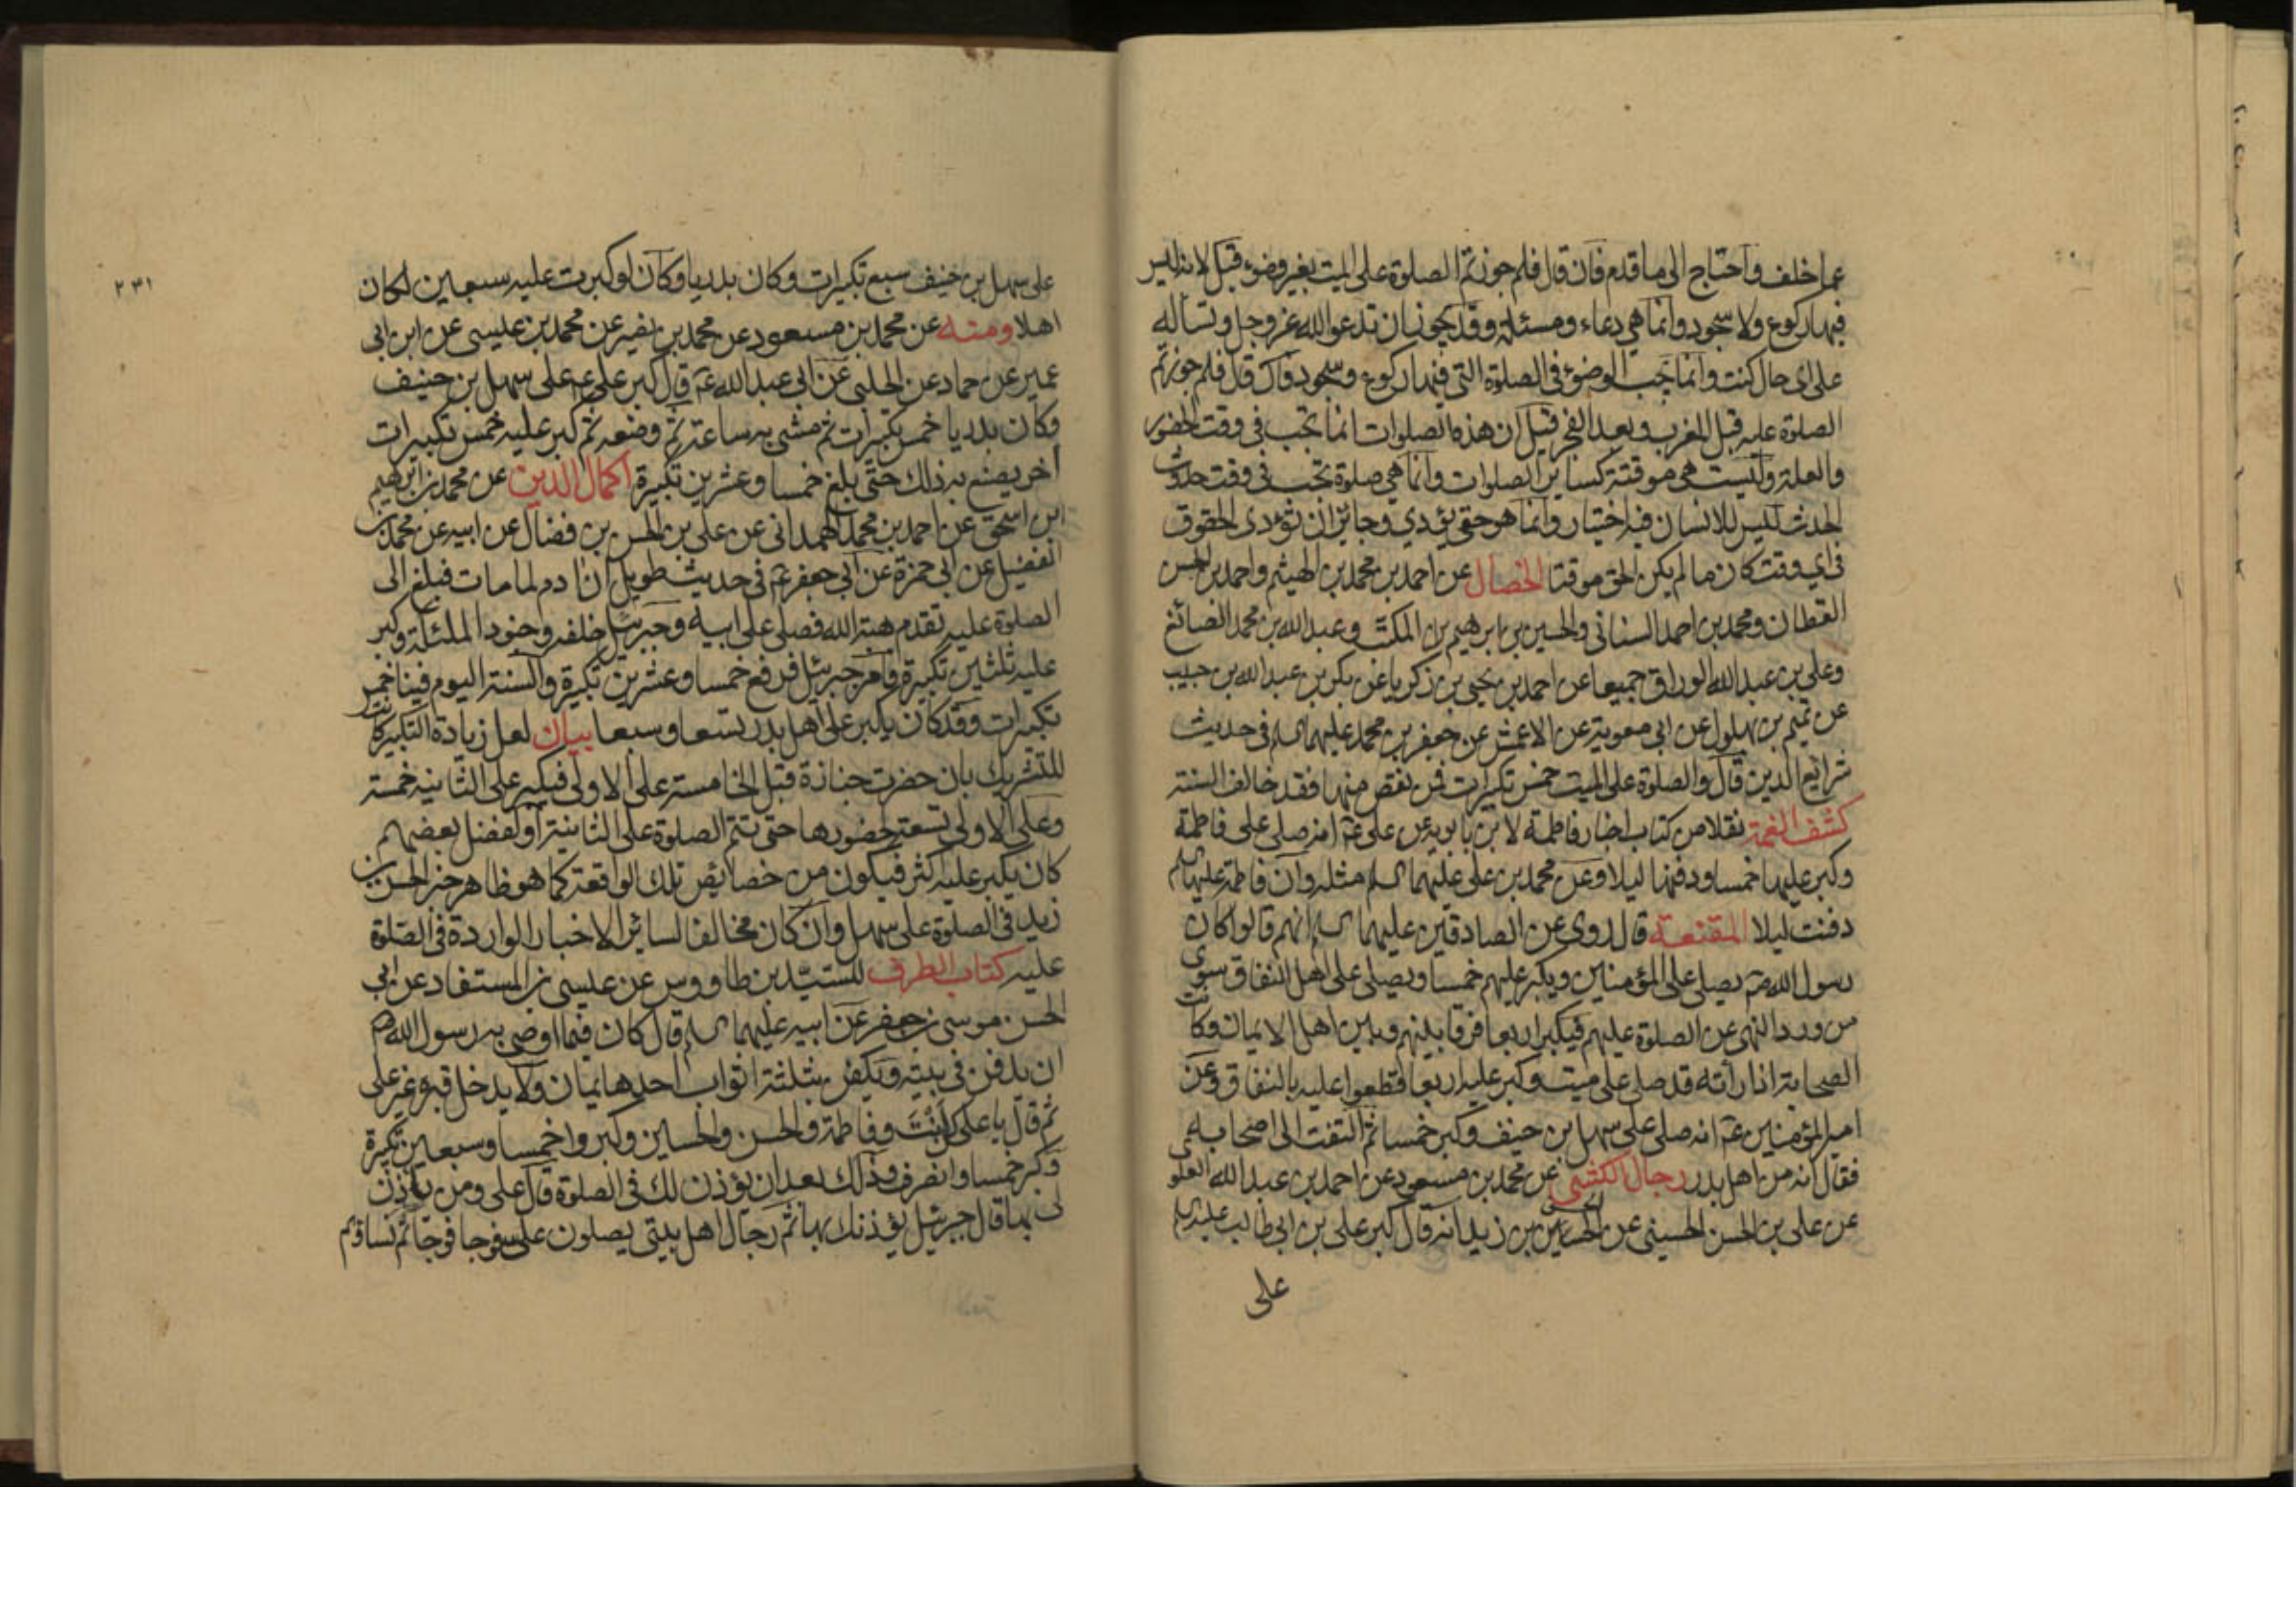 عما خلف واحتاج الى ما قدم فان قال فلم جوزتم الصلوة على الميت بغير وضوء قيل لانه ليس
فيها ركوع ولا سجود وانما هي دعاء ومسئلة وقد يجوز ان تدعو الله عز وجل وتساله
على اى حال كنت وانما يجب الوضوء في الصلوة التي فيها ركوع وسجود فان قال فلم جوزتم
الصلوة عليه قبل المغرب وبعد الفجر قيل ان هذه الصلوات انما تجب في وقت الحضور
والعلة وليست هى موقتة كساير الصلوات وانما هي صلوة تجب في وقت حدوث
الحدث ليس للانسان فيه اختيار وانما هو حق يؤدي وجائز ان تؤدى الحقوق
في اي وقت كان ما لم يكن الحق موقتا الخصال عن احمد بن محمد بن الهيثم واحمد بن الحسن
القطان ومحمد بن احمد السناني والحسين بن ابرهيم بن المكتب وعبد الله بن محمد الصائغ
وعلي بن عبد الله الوراق جميعا عن احمد بن يحيى بن زكريا عن بكر بن عبد الله بن حبيب
عن تميم بن بهلول عن ابى معوية عن الاعمش عن جعفر بن محمد عليهما السلم في حديث
شرايع الدين قال والصلوة على الميت خمس تكبيرات فمن نقص منها فقد خالف السنة
كشف الغمة نقلا من كتاب اخبار فاطمة لابن بابويه عن على عم انه صلى على فاطمة
وكبر عليها خمسا ودفنها ليلا وعن محمد بن على عليهما السلم مثله وان فاطمة عليها السلم
دفنت ليلا المقنعة قال روى عن الصادقين عليهما السلم انهم قالوا كان
رسول الله ص يصلي على المؤمنين ويكبر عليهم خمسا ويصلى على اهل النفاق سوى
من ورد النهى عن الصلوة عليهم فيكبر اربعا فرقا بينهم وبين اهل الايمان وكانت
الصحابة اذا راته قد صلى على ميت وكبر عليه اربعا قطعوا عليه بالنفاق وعن
امير المؤمنين عم انه صلى على سهل بن حنيف وكبر خمسا ثم التفت الى اصحابه
فقال انه من اهل بدر رجال الكشى عن محمد بن مسعود عن احمد بن عبد الله العلوى
عن على بن الحسن الحسينى عن الحسن بن زيد انه قال كبر على بن ابى طالب عليه السلم
على
٢٣١
على سهل بن حنيف سبع تكبيرات وكان بدريا وكان لو كبرت عليه سبعين لكان
اهلا ومنه عن محمد بن مسعود عن محمد بن نصير عن محمد بن عيسى عن ابن ابى
عمير عن حماد عن الحلبى عن ابى عبد الله عم قال كبر على عم على سهل بن حنيف
وكان بدريا خمس تكبيرات ثم مشى به ساعة ثم وضعه ثم كبر عليه خمس تكبيرات
اخر يصنع به ذلك حتى بلغ خمسا وعشرين تكبيرة اكمال الدين عن محمد بن ابرهيم
ابن اسحق عن احمد بن محمد الهمداني عن على بن الحسن بن فضال عن ابيه عن محمد بن
الفضيل عن ابى حمزة عن ابى جعفر عم فى حديث طويل ان ادم لما مات فبلغ الى
الصلوة عليه تقدم هبة الله فصلى على ابيه وجبرئيل خلفه وجنود الملئكة وكبر
عليه ثلثين تكبيرة فامر جبرئيل فرفع خمسا وعشرين تكبيرة والسنة اليوم فينا خمس
تكبيرات وقد كان يكبر على اهل بدر تسعا وسبعا بيان لعل زيادة التكبيركانت
للتشريك بان حضرت جنازة قبل الخامسة على الاولى فيكبر على الثانية خمسة
وعلى الاولى تسعة لحضورها حتى تتم الصلوة على الثانية او لفضل بعضهم
كان يكبر عليه اكثر فيكون من خصايص تلك الواقعة كما هو ظاهر خبر الحسن بن
زيد في الصلوة على سهل وان كان مخالفا لسائر الاخبار الواردة في الصلوة
عليه كتاب الطرف للسيد بن طاووس عن عيسى بن المستفاد عن ابي
الحسن موسى بن جعفر عن ابيه عليهما السلم قال كان فيما اوصى به رسول الله ص
ان يدفن في بيته ويكفن بثلثة اثواب احدها يمان ولا يدخل قبره غير على
ثم قال يا على كن انت وفاطمة والحسن والحسين وكبروا خمسا وسبعين تكبيرة
وكبر خمسا وانصرف وذلك بعد ان يؤذن لك في الصلوة قال على ومن ياذن
لى بها قال جبرئيل يؤذنك بها ثم رجال اهل بيتى يصلون على فوجا فوجا ثم نساؤهم